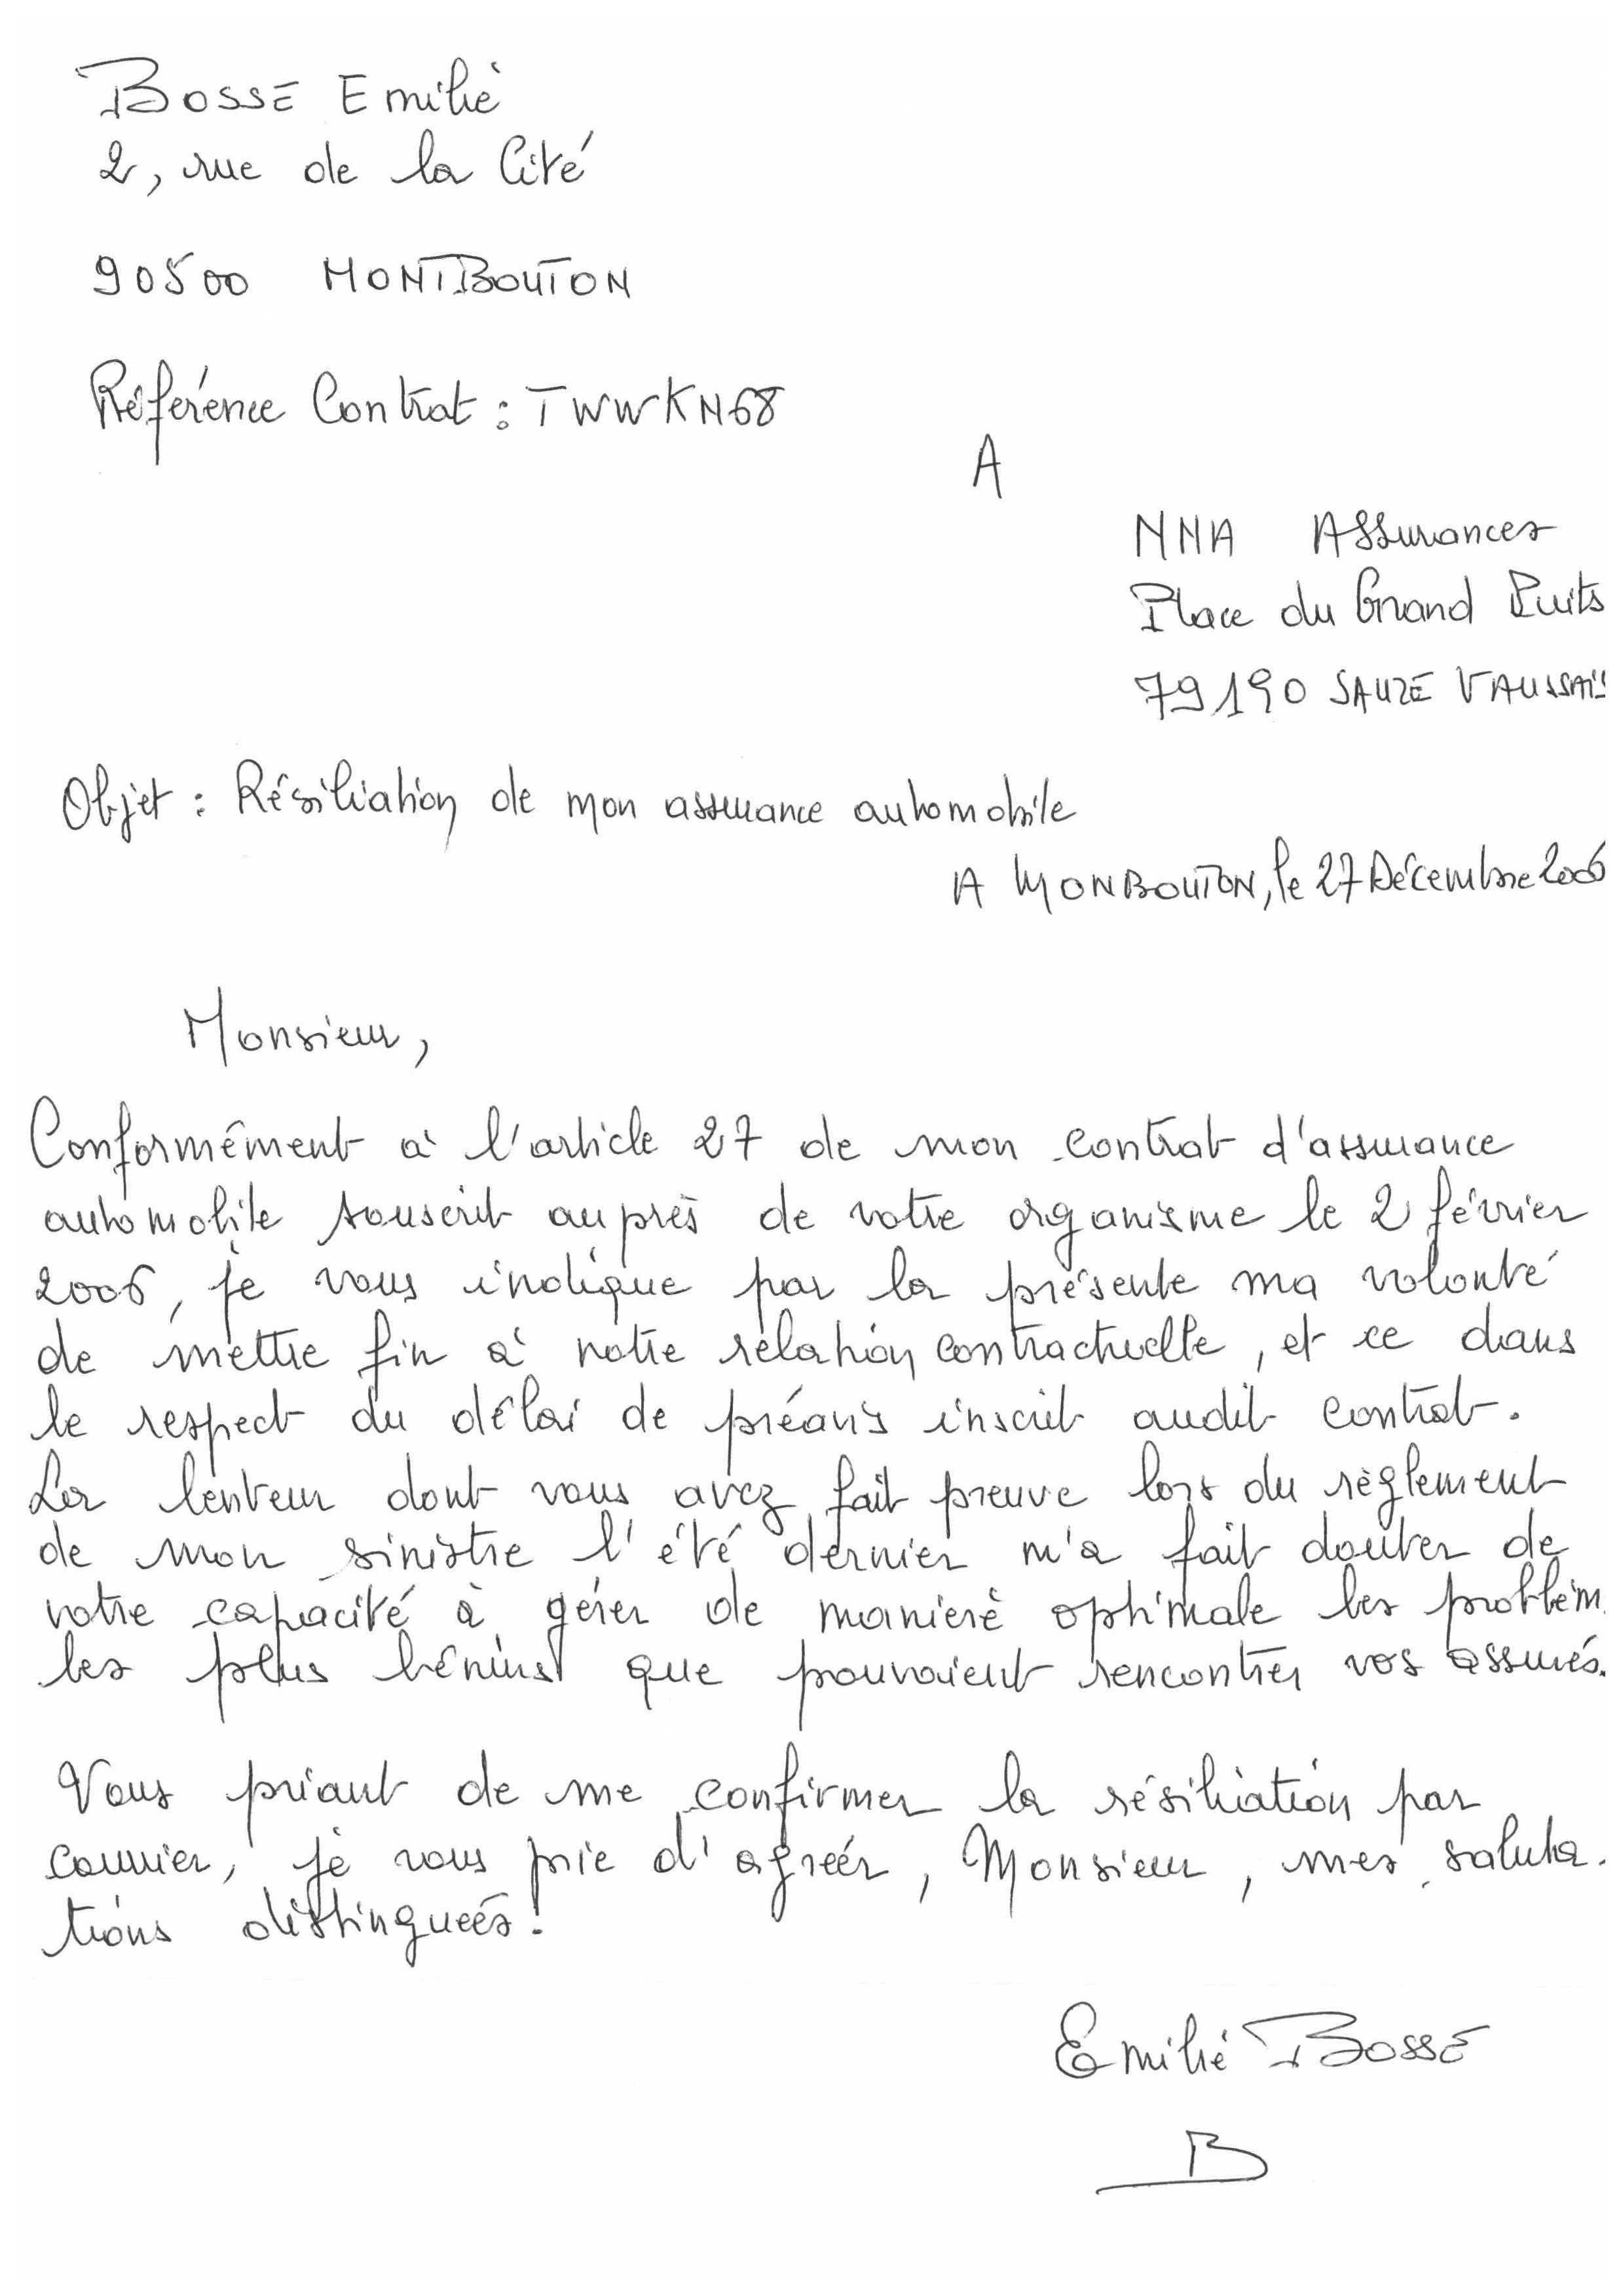 BOSSE Emilie
2, rue de la Cité
90500 MONTBOUTON
Référence Contrat : TWWKN68
A
NNA Assurances
Place du Grand Puits
79190 SAUZE VAUSSAIS
Objet : Résiliation de mon assurance automobile
A MONBOUTON, le 27 Décembre 2006
Monsieur,
Conformément à l'article 27 de mon contrat d'assurance
automobile souscrit auprès de votre organisme le 2 février
2006, je vous indique par la présente ma volonté
de mettre fin à notre relation contractuelle, et ce dans
le respect du délai de préavis inscrit audit contrat.
La lenteur dont vous avez fait preuve lors du règlement
de mon sinistre l'été dernier m'a fait douter de
votre capacité à gérer de manière optimale les problèm
les plus bénins que pouvaient rencontrer vos assurés.
Vous priant de me confirmer la résiliation par
courrier, je vous prie d'agréer, Monsieur, mes saluta-
tions distinguées.
Emilie BOSSE
B